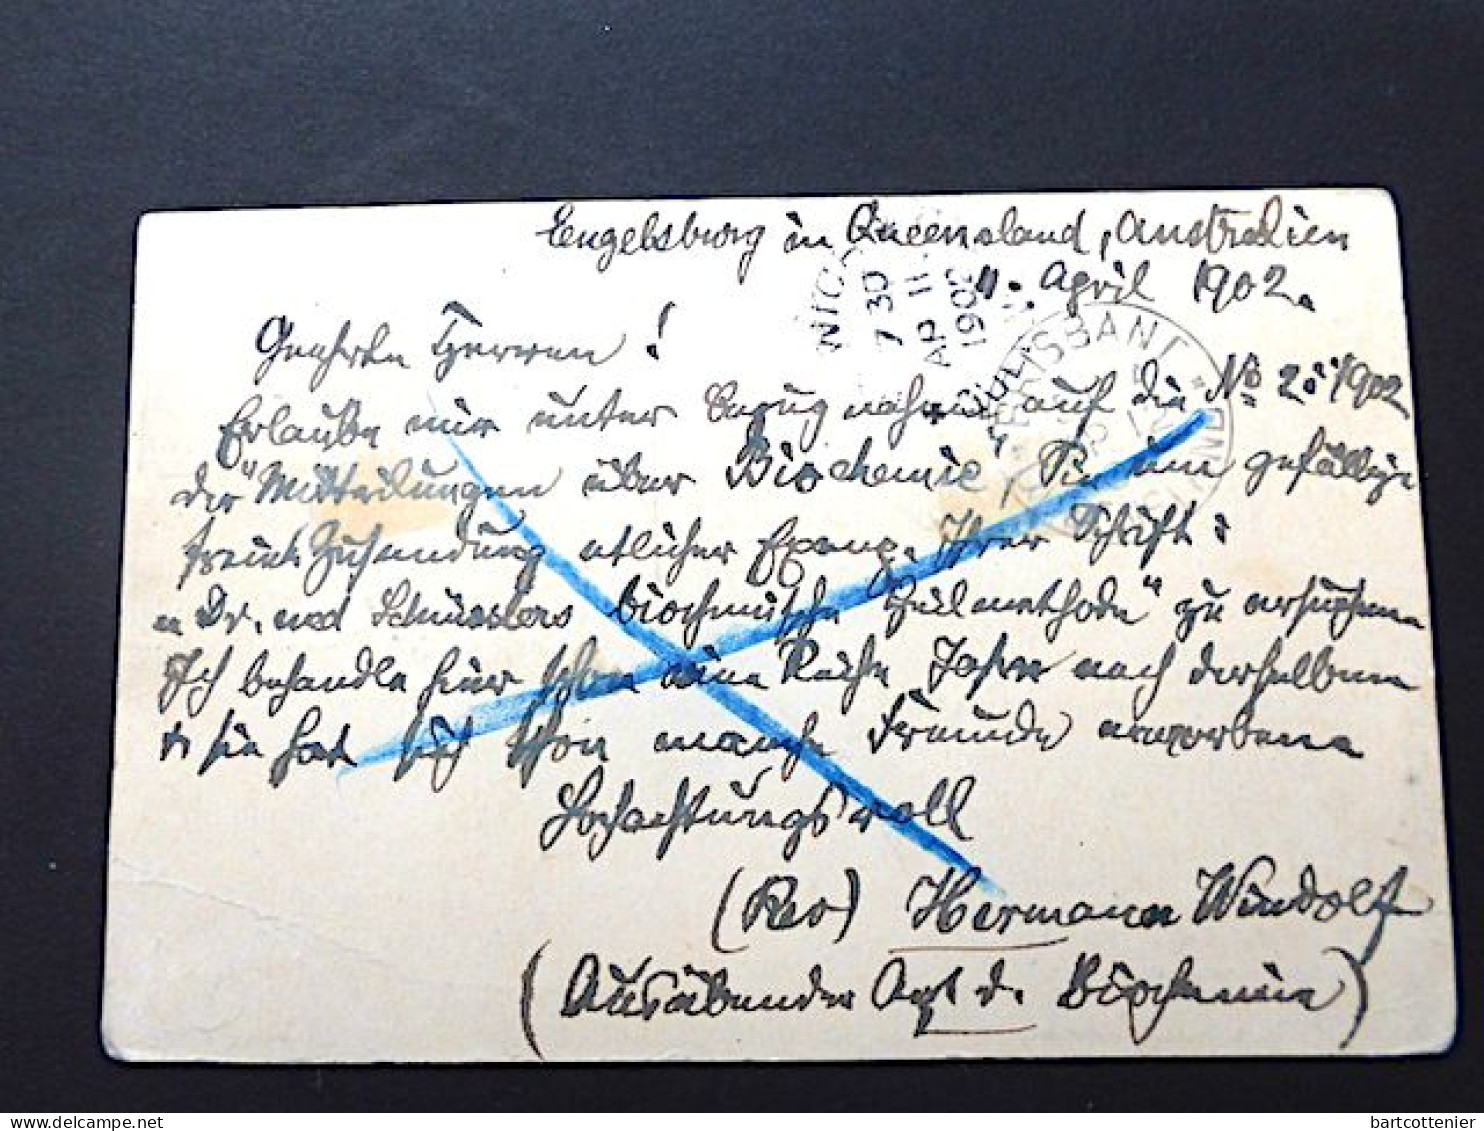 Engelsburg in Queensland, Australien
11. April 1902.
Geehrte Herren!
Erlaube mir unter Bezugnahme auf die No 2. 1902
der "Mitteilungen über Biochemie", Sie um gefällige
Zusendung etlicher Exempl. Ihrer Schrift:
„Dr. med Schüsslers biochemische Heilmethode“ zu ersuchen
Ich behandle hier schon eine Reihe Jahre nach derselben
sie hat sich schon manche Freunde erworben
Hochachtungsvoll
(Rev) Hermann Windolf
(Ausübender Arzt d. Biochemie)
7 30
AP 11
BRISBANE
QUEENSLAND
bartcottenier
delcampe.net